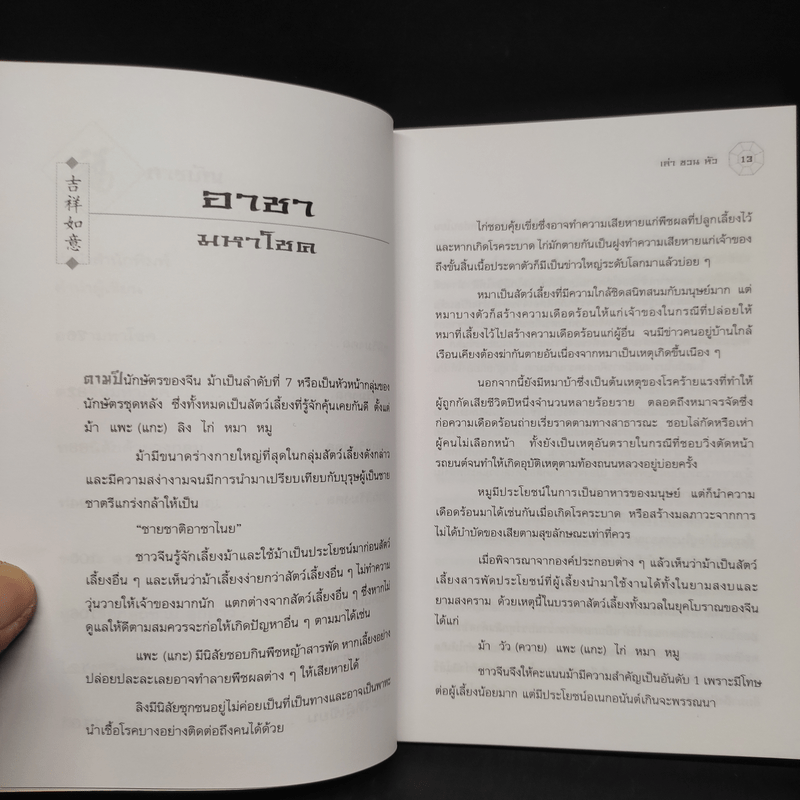 吉祥如意
อาชา
มหาโชค
ตามปีนักษัตรของจีน ม้าเป็นลำดับที่ 7 หรือเป็นหัวหน้ากลุ่มของ
นักษัตรชุดหลัง ซึ่งทั้งหมดเป็นสัตว์เลี้ยงที่รู้จักคุ้นเคยกันดี ตั้งแต่
ม้า แพะ (แกะ) ลิง ไก่ หมา หมู
ม้ามีขนาดร่างกายใหญ่ที่สุดในกลุ่มสัตว์เลี้ยงดังกล่าว
และมีความสง่างามจนมีการนำมาเปรียบเทียบกับบุรุษผู้เป็นชาย
ชาตรีแกร่งกล้าให้เป็น
“ชายชาติอาชาไนย”
ชาวจีนรู้จักเลี้ยงม้าและใช้ม้าเป็นประโยชน์มาก่อนสัตว์
เลี้ยงอื่น ๆ และเห็นว่าม้าเลี้ยงง่ายกว่าสัตว์เลี้ยงอื่น ๆ ไม่ทำความ
วุ่นวายให้เจ้าของมากนัก แตกต่างจากสัตว์เลี้ยงอื่น ๆ ซึ่งหากไม่
ดูแลให้ดีตามสมควรจะก่อให้เกิดปัญหาอื่น ๆ ตามมาได้เช่น
แพะ (แกะ) มีนิสัยชอบกินพืชหญ้าสารพัด หากเลี้ยงอย่าง
ปล่อยปละละเลยอาจทำลายพืชผลต่าง ๆ ให้เสียหายได้
ลิงมีนิสัยซุกซนอยู่ไม่ค่อยเป็นที่เป็นทางและอาจเป็นพาหะ
นำเชื้อโรคบางอย่างติดต่อถึงคนได้ด้วย
เต่า ฮวน หัว 13
ไก่ชอบคุ้ยเขี่ยซึ่งอาจทำความเสียหายแก่พืชผลที่ปลูกเลี้ยงไว้
และหากเกิดโรคระบาด ไก่มักตายกันเป็นฝูงทำความเสียหายแก่เจ้าของ
ถึงขั้นสิ้นเนื้อประดาตัวก็มีเป็นข่าวใหญ่ระดับโลกมาแล้วบ่อย ๆ
หมาเป็นสัตว์เลี้ยงที่มีความใกล้ชิดสนิทสนมกับมนุษย์มาก แต่
หมาบางตัวก็สร้างความเดือดร้อนให้แก่เจ้าของในกรณีที่ปล่อยให้
หมาที่เลี้ยงไว้ไปสร้างความเดือดร้อนแก่ผู้อื่น จนมีข่าวคนอยู่บ้านใกล้
เรือนเคียงต้องฆ่ากันตายอันเนื่องจากหมาเป็นเหตุเกิดขึ้นเนือง ๆ
นอกจากนี้ยังมีหมาบ้าซึ่งเป็นต้นเหตุของโรคร้ายแรงที่ทำให้
ผู้ถูกกัดเสียชีวิตปีหนึ่งจำนวนหลายร้อยราย ตลอดถึงหมาจรจัดซึ่ง
ก่อความเดือดร้อนถ่ายเรี่ยราดตามทางสาธารณะ ชอบไล่กัดหรือเห่า
ผู้คนไม่เลือกหน้า ทั้งยังเป็นเหตุอันตรายในกรณีที่ชอบวิ่งตัดหน้า
รถยนต์จนทำให้เกิดอุบัติเหตุตามท้องถนนหลวงอยู่บ่อยครั้ง
หมูมีประโยชน์ในการเป็นอาหารของมนุษย์ แต่ก็นำความ
เดือดร้อนมาได้เช่นกันเมื่อเกิดโรคระบาด หรือสร้างมลภาวะจากการ
ไม่ได้บำบัดของเสียตามสุขลักษณะเท่าที่ควร
เมื่อพิจารณาจากองค์ประกอบต่าง ๆ แล้วเห็นว่าม้าเป็นสัตว์
เลี้ยงสารพัดประโยชน์ที่ผู้เลี้ยงนำมาใช้งานได้ทั้งในยามสงบและ
ยามสงคราม ด้วยเหตุนี้ในบรรดาสัตว์เลี้ยงทั้งมวลในยุคโบราณของจีน
ได้แก่
ม้า วัว (ควาย) แพะ (แกะ) ไก่ หมา หมู
ชาวจีนจึงให้คะแนนม้ามีความสำคัญเป็นอันดับ 1 เพราะมีโทษ
ต่อผู้เลี้ยงน้อยมาก แต่มีประโยชน์อเนกอนันต์เกินจะพรรณนา